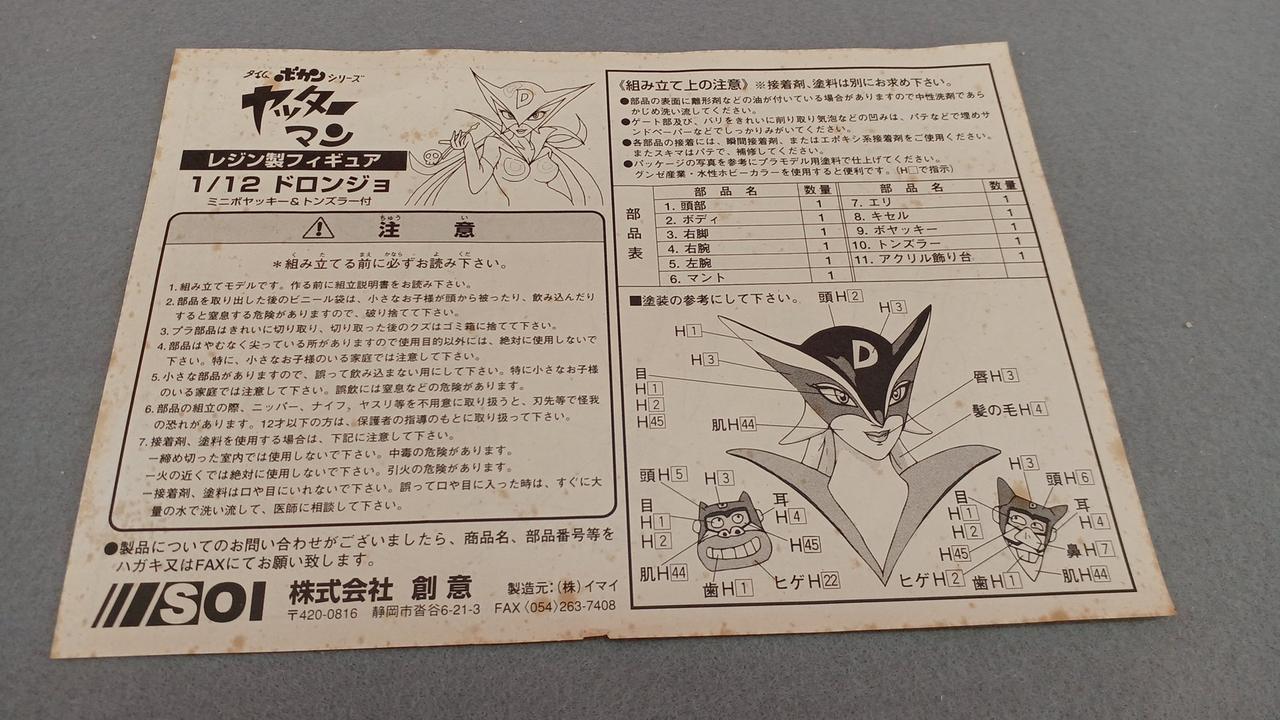 タイム ボカン シリーズ
ヤッター
マン
レジン製フィギュア
1/12 ドロンジョ
ミニボヤッキー&トンズラー付
D
⚠ 注 意
ちゅう い
*組み立てる前に必ずお読み下さい。
1.組み立てモデルです。作る前に組立説明書をお読み下さい。
2.部品を取り出した後のビニール袋は、小さなお子様が頭から被ったり、飲み込んだり
すると窒息する危険がありますので、破り捨てて下さい。
3.プラ部品はきれいに切り取り、切り取った後のクズはゴミ箱に捨てて下さい。
4.部品はやむなく尖っている所がありますので使用目的以外には、絶対に使用しないで
下さい。特に、小さなお子様のいる家庭では注意して下さい。
5.小さな部品がありますので、誤って飲み込まない用にして下さい。特に小さなお子様
のいる家庭では注意して下さい。誤飲には窒息などの危険があります。
6.部品の組立の際、ニッパー、ナイフ、ヤスリ等を不用意に取り扱うと、刃先等で怪我
の恐れがあります。12才以下の方は、保護者の指導のもとに取り扱って下さい。
7.接着剤、塗料を使用する場合は、下記に注意して下さい。
ー締め切った室内では使用しないで下さい。中毒の危険があります。
ー火の近くでは絶対に使用しないで下さい。引火の危険があります。
ー接着剤、塗料は口や目にいれないで下さい。誤って口や目に入った時は、すぐに大
量の水で洗い流して、医師に相談して下さい。
●製品についてのお問い合わせがございましたら、商品名、部品番号等を
ハガキ又はFAXにてお願い致します。
SOI 株式会社 創意 製造元:(株)イマイ
〒420-0816 静岡市沓谷6-21-3 FAX〈054〉263-7408
《組み立て上の注意》※接着剤、塗料は別にお求め下さい。
●部品の表面に離形剤などの油が付いている場合がありますので中性洗剤であら
かじめ洗い流してください。
●ゲート部及び、バリをきれいに削り取り気泡などの凹みは、パテなどで埋めサ
ンドペーパーなどでしっかりみがいてください。
●各部品の接着には、瞬間接着剤、またはエポキシ系接着剤をご使用ください。
またスキマはパテで、補修してください。
●パッケージの写真を参考にプラモデル用塗料で仕上げてください。
グンゼ産業・水性ホビーカラーを使用すると便利です。(H□で指示)
部品表
部品名 数量 部品名 数量
1. 頭部 1 7. エリ 1
2. ボディ 1 8. キセル 1
3. 右脚 1 9. ボヤッキー 1
4. 右腕 1 10. トンズラー 1
5. 左腕 1 11. アクリル飾り台 1
6. マント 1
■塗装の参考にして下さい。
頭H2
H3
H1
H3
D
目
H1
H2
H45
唇H3
髪の毛H4
肌H44
頭H5
H3
目
H1
H2
耳
H4
H45
肌H44
歯H1
ヒゲH22
H3
頭H6
目
H1
H2
耳
H4
H45
鼻H7
ヒゲH2
歯H1
肌H44